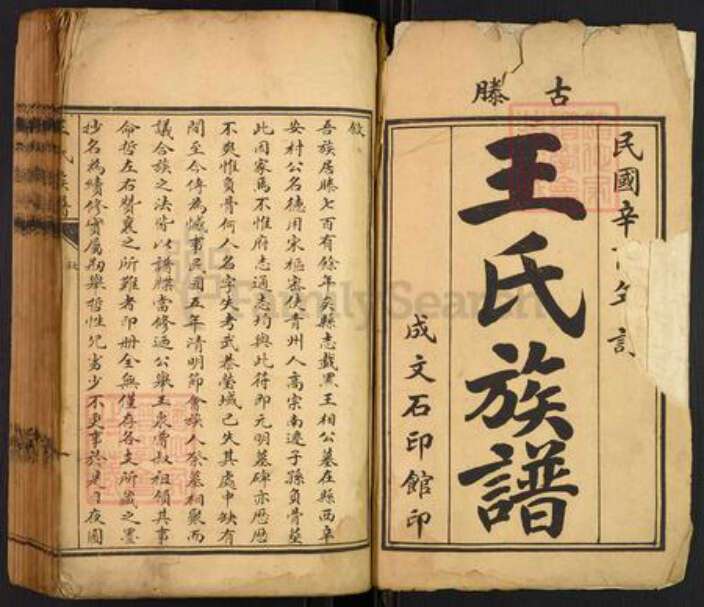 古滕
民國辛
王氏族譜
成文石印館印
敘
吾族居滕七百有餘年矣縣志載黑王相公墓在縣西辛
安村公名德用宋樞密使青州人高宗南遷子孫負骨塟
此因家焉不惟府志通志均與此符即元明墓碑亦歷歷
不爽惟負骨何人名字失考武恭塋域已失其處中缺有
間至今傳為憾事民國五年清明節會族人祭墓相聚而
議合族之法皆以譜牒當修迺公舉王衷脅叔祖領其事
命哲左右贊襄之所難者即册全無僅存各支所藏之墨
抄名為續修實屬剏舉哲性兒當少不更事於是日夜圖
王氏族譜
FamilySearch